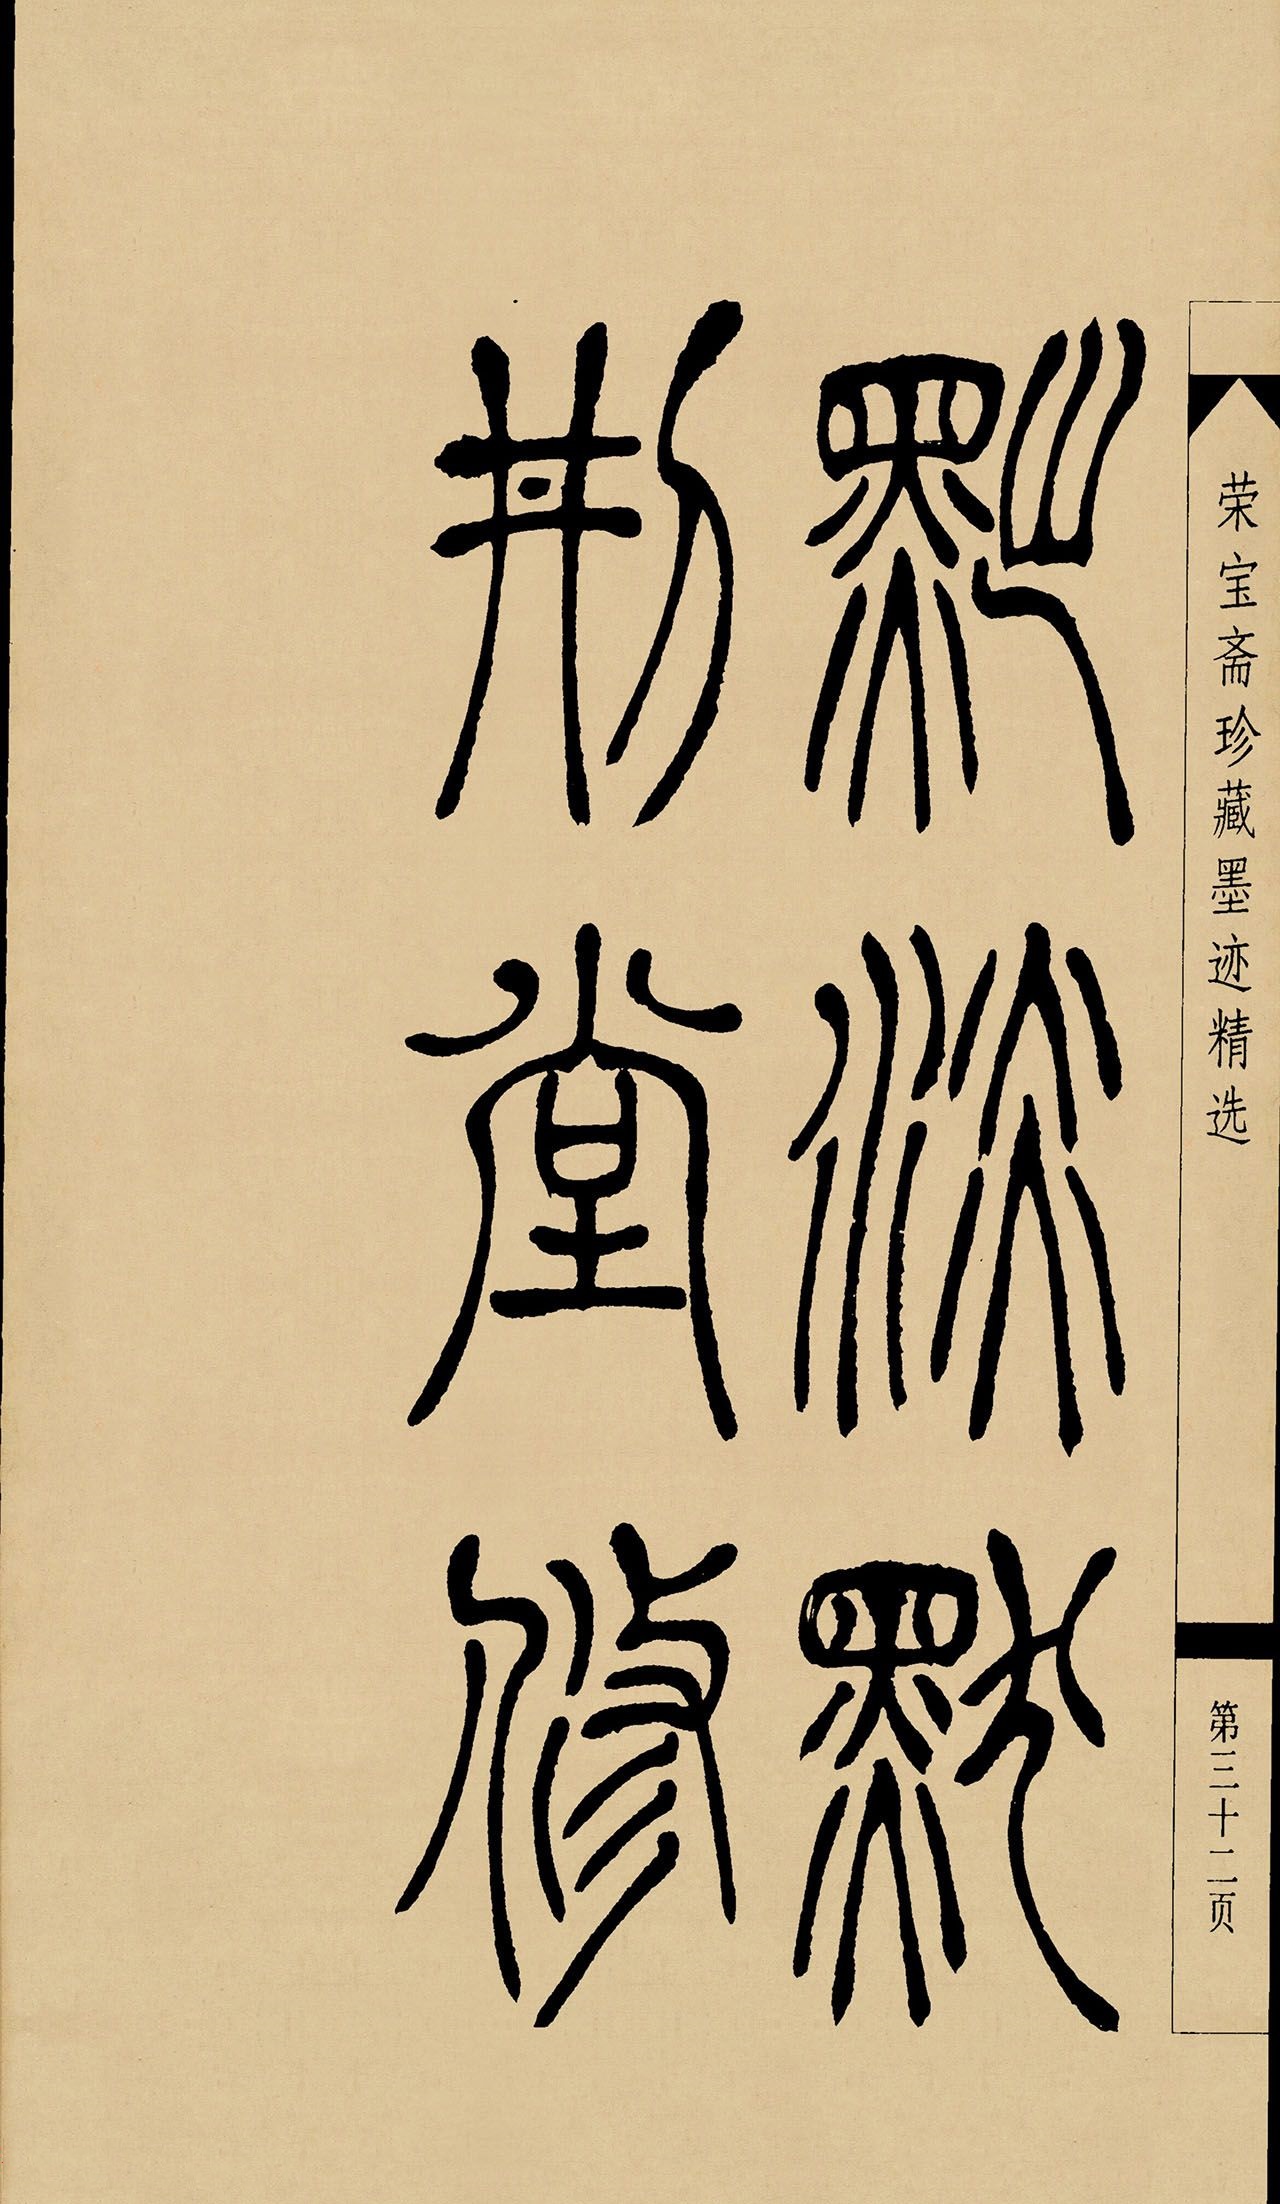 荣宝斋珍藏墨迹精选
第三十二页
淡默
刑堂修